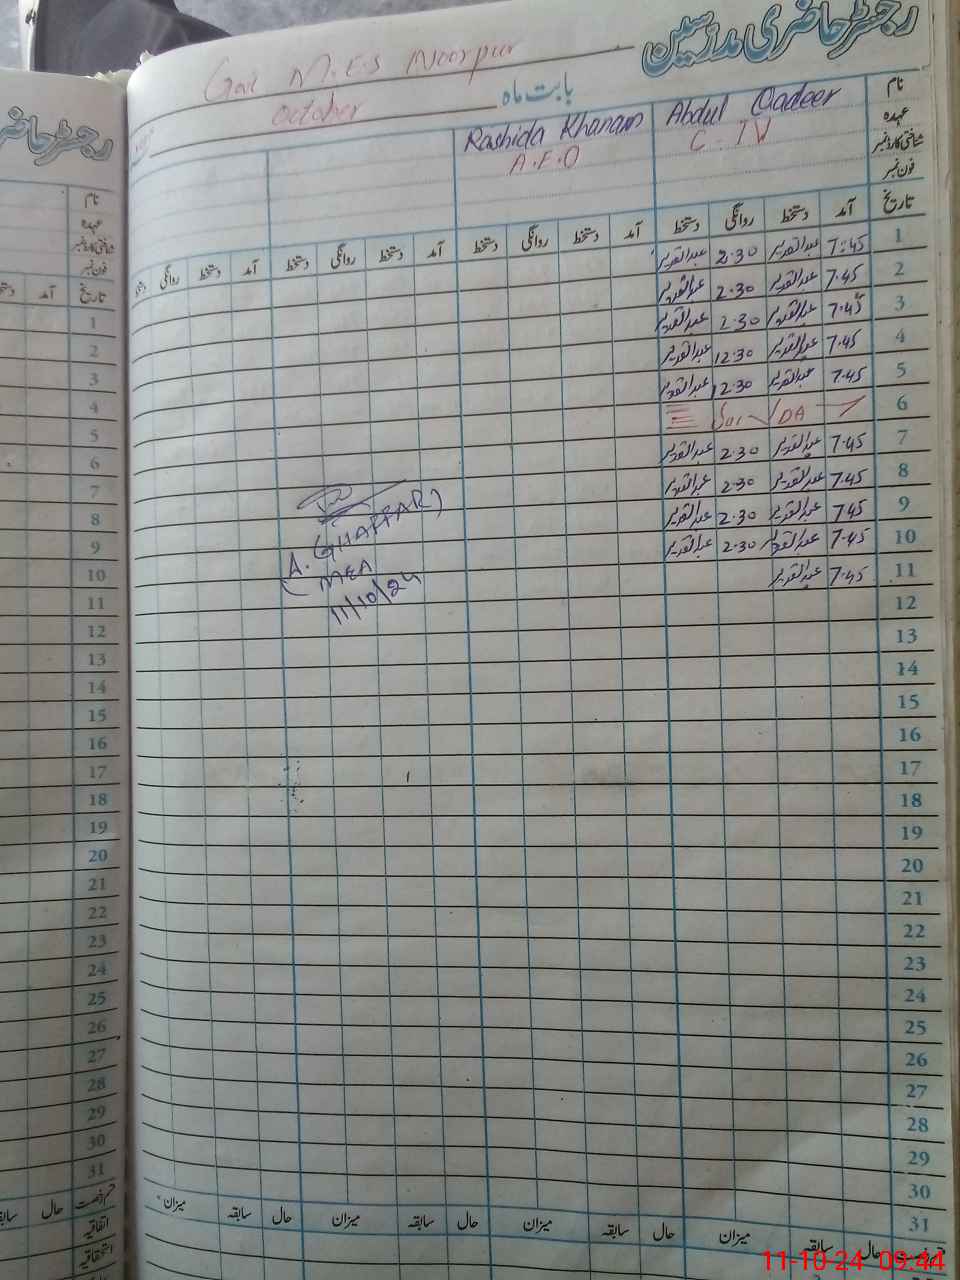 رجسٹر حاضری مدرسین
Govt M.E.S Noorpur
بابت ماہ October
نام Abdul Qadeer Rashida Khanam
عہدہ C-IV A.E.O
شناختی کارڈ نمبر
فون نمبر
تاریخ آمد دستخط روانگی دستخط آمد دستخط روانگی دستخط آمد دستخط روانگی دستخط آمد دستخط روانگی
1 7:45 عبدالقدیر 2.30 عبدالقدیر
2 7.45 عبدالقدیر 2.30 عبدالقدیر
3 7.45 عبدالقدیر 2.30 عبدالقدیر
4 7.45 عبدالقدیر 12.30 عبدالقدیر
5 7.45 عبدالقدیر 12.30 عبدالقدیر
6
7 7.45 عبدالقدیر 2.30 عبدالقدیر
8 7.45 عبدالقدیر 2.30 عبدالقدیر
9 7.45 عبدالقدیر 2.30 عبدالقدیر
10 7.45 عبدالقدیر 2.30 عبدالقدیر
11 7.45 عبدالقدیر
12
13
14
15
16
17
18
19
20
21
22
23
24
25
26
27
28
29
30
31
(A. GHAFFAR)
MEA
11/10/24
حال سابقہ میزان حال سابقہ میزان حال سابقہ میزان حال سابقہ میزان
رجسٹر حاضری
نام
عہدہ
شناختی کارڈ نمبر
فون نمبر
تاریخ آمد
1
2
3
4
5
6
7
8
9
10
11
12
13
14
15
16
17
18
19
20
21
22
23
24
25
26
27
28
29
30
31
قسم رخصت حال
اتفاقیہ
استحقاقیہ
11-10-24 09:44